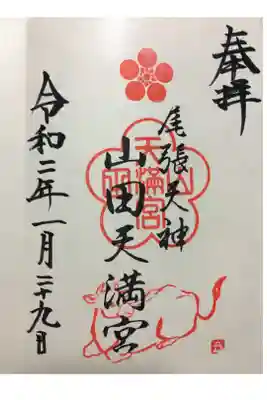 奉拝
尾張天神
山田天満宮
天満宮
令和二年一月二十九日